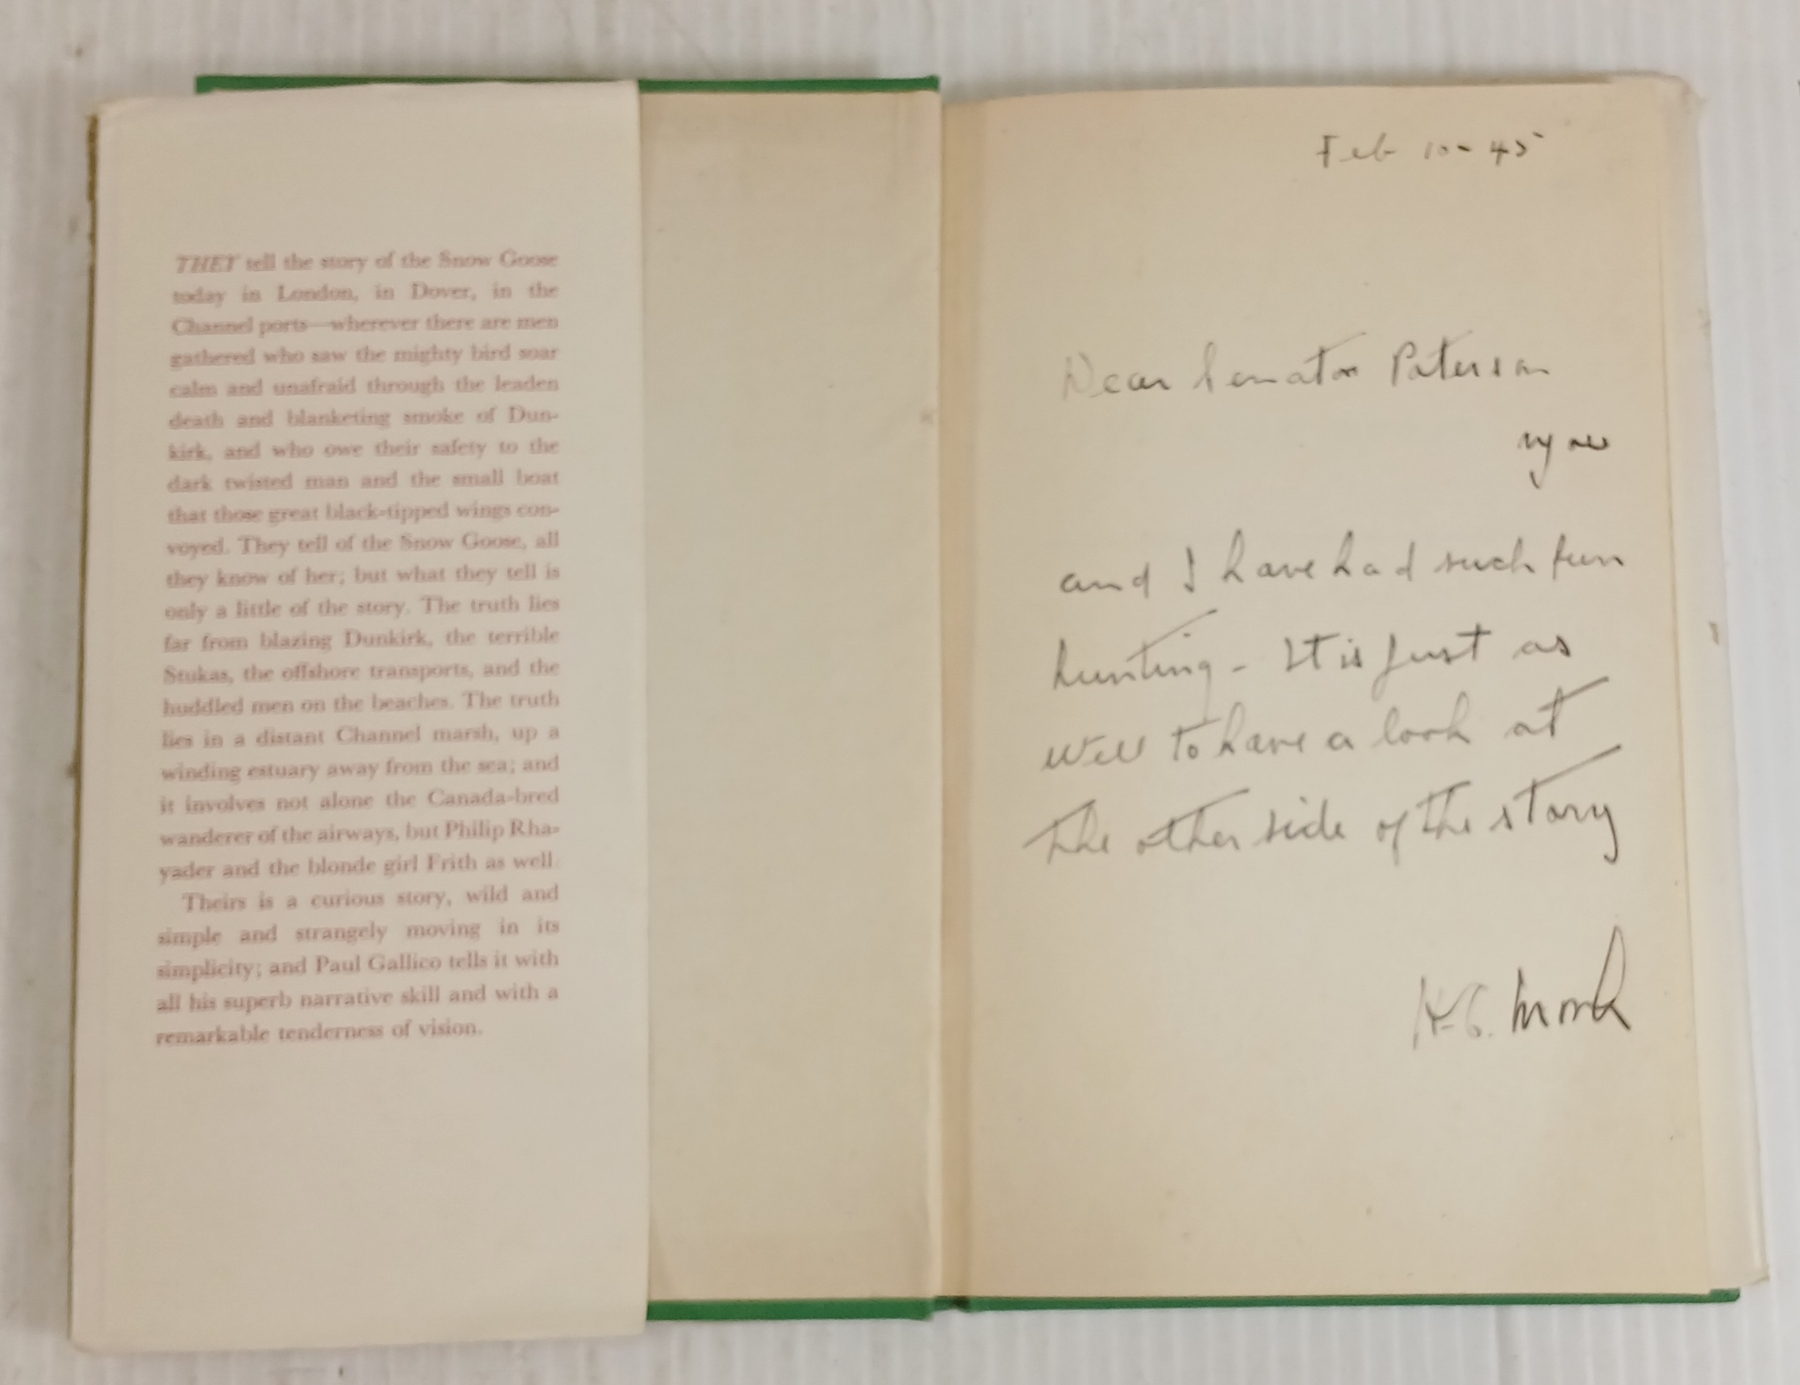 THEY tell the story of the Snow Goose
today in London, in Dover, in the
Channel ports—wherever there are men
gathered who saw the mighty bird soar
calm and unafraid through the leaden
death and blanketing smoke of Dun-
kirk, and who owe their safety to the
dark twisted man and the small boat
that those great black-tipped wings con-
voyed. They tell of the Snow Goose, all
they know of her; but what they tell is
only a little of the story. The truth lies
far from blazing Dunkirk, the terrible
Stukas, the offshore transports, and the
huddled men on the beaches. The truth
lies in a distant Channel marsh, up a
winding estuary away from the sea; and
it involves not alone the Canada-bred
wanderer of the airways, but Philip Rha-
yader and the blonde girl Frith as well.
Theirs is a curious story, wild and
simple and strangely moving in its
simplicity; and Paul Gallico tells it with
all his superb narrative skill and with a
remarkable tenderness of vision.
Feb 10-45
Dear Senator Paterson
and I have had such fun
hunting - It is just as
well to have a look at
the other side of the story